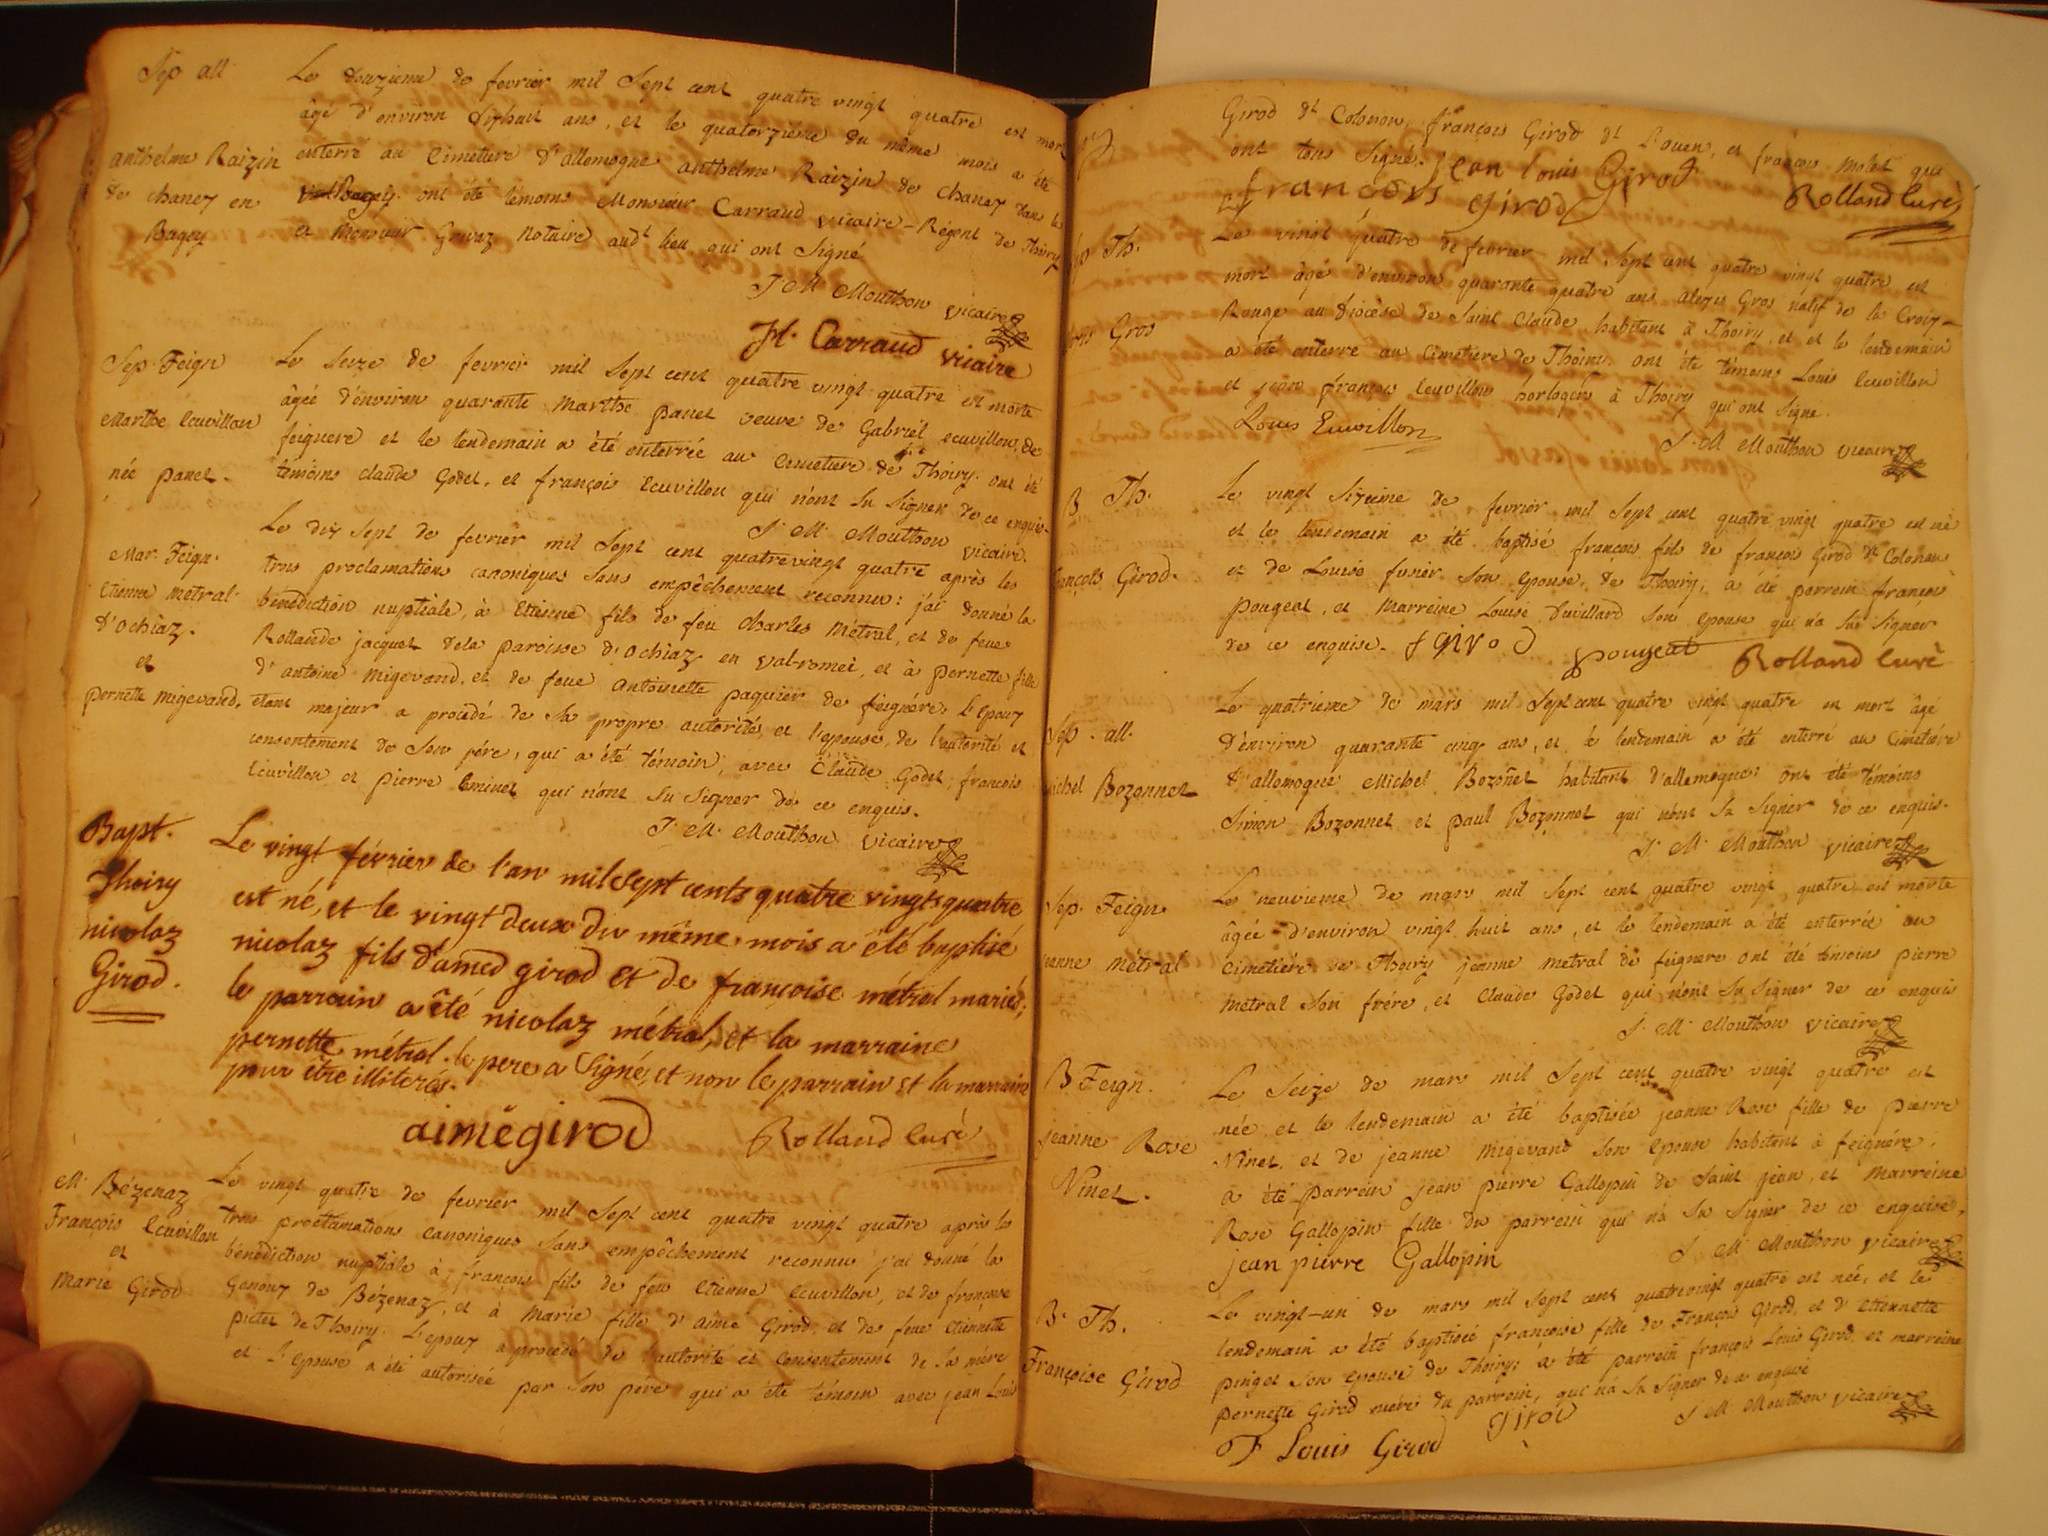 Sep all
anthelme Raizin
de chaney en
Bagey
Le douzieme de fevrier mil Sept cent quatre vingt quatre est mort
âgé d'environ dixhuit ans, et le quatorzième du même mois a été
enterré au Cimetiere d'allemogne anthelme Raizin de chaney dans le
Bugey. ont été témoins Monsieur Carraud vicaire-Régent de Thoiry
et Monsieur Grivaz Notaire audt lieu qui ont Signé
J. M. Mouthon vicaire
H. Carraud vicaire
Sep. Feign
Marthe Ecuvillon
née panet.
Le Seize de fevrier mil Sept cent quatre vingt quatre est morte
âgée d'environ quarante Marthe panet veuve de Gabriel ecuvillon, de
feignere et le lendemain a été enterrée au Cimetiere de Thoiry. ont été
témoins claude Godet, et françois Ecuvillon qui n'ont Su Signer de ce enquis
J. M. Mouthon vicaire.
Mar. Feign.
Etienne Métral
d'ochiaz.
et
pernette migevand.
Le dix Sept de fevrier mil Sept cent quatrevingt quatre après les
trois proclamations canoniques Sans empêchement reconnu: j'ai donné la
bénédiction nuptiale, à Etienne fils de feu Charles Métral, et de feue
Rollande jacquet de la paroisse d'ochiaz en val-romei, et à pernette fille
d'antoine Migevand, et de feue antoinette paquier de feignére. L'epoux
etant majeur a procedé de Sa propre autorité, et l'epouse, de l'autorité et
consentement de Son pére, qui a été témoin, avec Claude Godet, francois
Ecuvillon et pierre Eminet qui n'ont Su Signer de ce enquis.
J. M. Mouthon vicaire
Bapt.
Thoiry
nicolaz
Girod.
Le vingt février de l'an mil sept cents quatre vingt quatre
est né, et le vingt deux du même mois a été baptisé
nicolaz fils d'amed girod et de françoise métral mariés;
le parrain a été nicolaz métral, et la marraine
pernette métral. le pere a Signé, et non le parrain et la marraine
pour être illiterés.
aimé girod Rolland Curé
M. Bézenaz
François Ecuvillon
et
Marie Girod
Le vingt quatre de fevrier mil Sept cent quatre vingt quatre après les
trois proclamations canoniques Sans empêchement reconnu j'ai donné la
bénédiction nuptiale à françois fils de feu Etienne Ecuvillon, et de françoise
Genoux de Bézenaz, et à Marie fille d'aimé Girod, et de feue Etiennette
pictet de Thoiry. L'epoux a procedé de l'autorité et consentement de Sa mére
et l'Epouse a été autorisée par Son pere qui a été témoin avec jean Louis
Girod dt Colonou, françois Girod dt Rouen, et françois Molet qui
ont tous Signé. Jean Louis Girod
francois girod Rolland Curé
Th.
Gros
Le vingt quatre de fevrier mil Sept cent quatre vingt quatre est
mort âgé d'environ quarante quatre ans alexis Gros natif de la Croix-
Rouge au diocèse de Saint Claude habitant à Thoiry, et et le lendemain
a été enterré au Cimetiere de Thoiry. ont été témoins Louis Ecuvillon
et jean françois Ecuvillon horlogers à Thoiry qui ont Signé.
Louis Euvillon
J. M. Mouthon vicaire
B Th.
françois Girod.
Le vingt Sixieme de fevrier mil Sept cent quatre vingt quatre est né
et le lendemain a été baptisé françois fils de françois Girod dt Colonou
et de Louise funer Son Epouse, de Thoiry; a été parrein françois
pougeat, et Marreine Louise duvillard Son epouse qui n'a Su Signer
de ce enquise. f girod pougeat Rolland Curé
Sep. all.
Michel Bozonnet
Le quatrieme de mars mil Sept cent quatre vingt quatre est mort âgé
d'environ quarante cinq ans, et le lendemain a été enterré au Cimetiére
d'allemogne Michel Bozonet habitant d'allemogne: ont été témoins
Simon Bozonnet et paul Bozonnet qui n'ont Su Signer de ce enquis.
J. M. Mouthon vicaire
Sep. Feign.
jeanne Métral
Le neuvieme de mars mil Sept cent quatre vingt quatre est morte
âgée d'environ vingt huit ans, et le lendemain a été enterrée au
Cimetiére de Thoiry jeanne metral de feignere ont été témoins pierre
metral Son frére, et Claude Godet qui n'ont Su Signer de ce enquis
J. M. Mouthon vicaire
B Feign.
jeanne Rose
Ninet.
Le Seize de mars mil Sept cent quatre vingt quatre est
née et le lendemain a été baptisée jeanne Rose fille de pierre
Ninet, et de jeanne Migevand Son Epouse habitant à feignére.
a été parrein jean pierre Gallopin de Saint jean, et Marreine
Rose Gallopin fille du parrein qui n'a Su Signer de ce enquise.
jean pierre Gallopin J. M. Mouthon vicaire
B. Th.
Françoise Girod
Le vingt-un de mars mil Sept cent quatrevingt quatre est née, et le
lendemain a été baptisée françoise fille de François Girod, et d'Etiennette
pinget Son epouse de Thoiry; a été parrein françois Louis Girod, et marreine
pernette Girod mére du parrein, qui n'a Su Signer de ce enquise
girod J. M. Mouthon vicaire
F Louis Girod